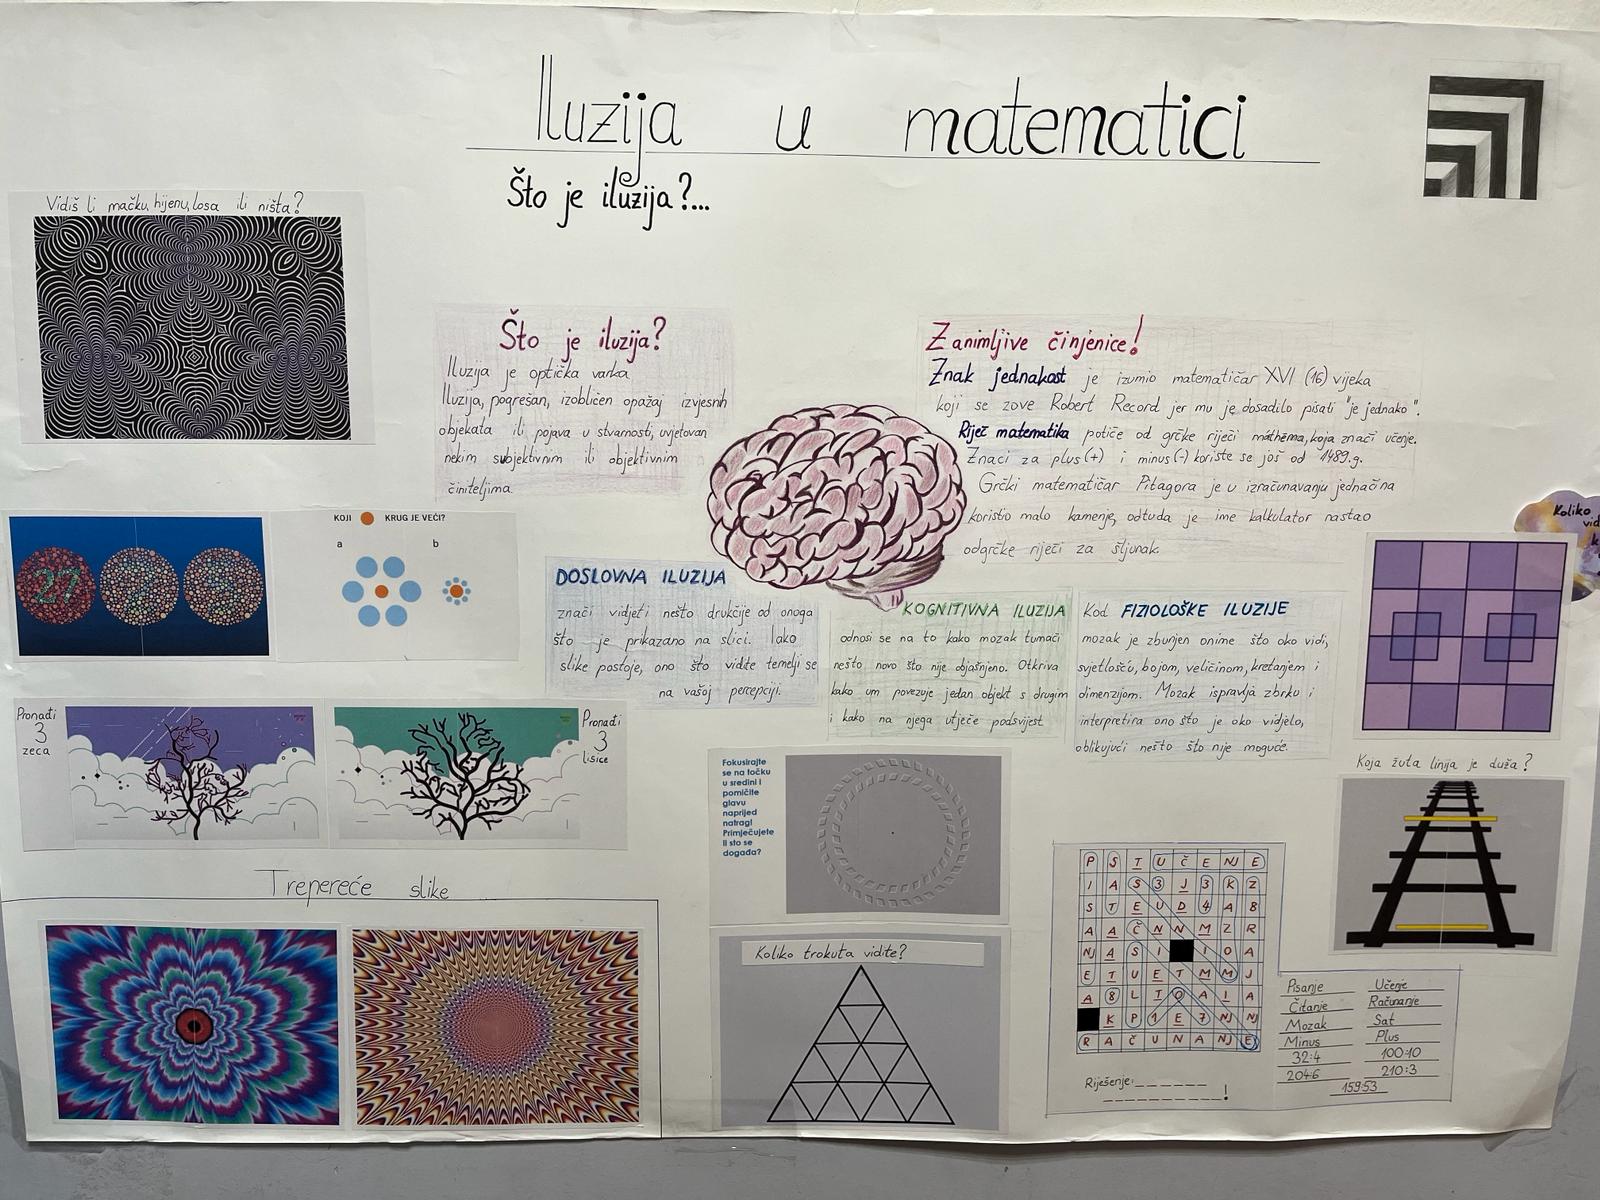 Iluzija u matematici
Što je iluzija?...
Vidiš li mačku, hijenu, losa ili ništa?
Što je iluzija?
Iluzija je optička varka
Iluzija, pogrešan, izobličen opažaj izvjesnih
objekata ili pojava u stvarnosti, uvjetovan
nekim subjektivnim ili objektivnim
činiteljima.
Zanimljive činjenice!
Znak jednakost je izumio matematičar XVI (16) vijeka
koji se zove Robert Record jer mu je dosadilo pisati "je jednako".
Riječ matematika potiče od grčke riječi máthēma, koja znači učenje.
Znaci za plus (+) i minus (-) koriste se još od 1489.g.
Grčki matematičar Pitagora je u izračunavanju jednačina
koristio malo kamenje, odtuda je ime kalkulator nastao
odgrčke riječi za šljunak.
Koliko
27
KOJI KRUG JE VEĆI?
a b
DOSLOVNA ILUZIJA
znači vidjeti nešto drukčije od onoga
što je prikazano na slici. Iako
slike postoje, ono što vidite temelji se
na vašoj percepciji.
KOGNITIVNA ILUZIJA
odnosi se na to kako mozak tumači
nešto novo što nije objašnjeno. Otkriva
kako um povezuje jedan objekt s drugim
i kako na njega utječe podsvijest
Kod FIZIOLOŠKE ILUZIJE
mozak je zbunjen onime što oko vidi,
svjetlošću, bojom, veličinom, kretanjem i
dimenzijom. Mozak ispravlja zbrku i
interpretira ono što je oko vidjelo,
oblikujući nešto što nije moguće.
Pronađi
3
zeca
Pronađi
3
lisice
Koja žuta linija je duža?
Fokusirajte
se na točku
u sredini i
pomičite
glavu
naprijed
natrag!
Primjećujete
li sto se
događa?
Trepereće slike
Koliko trokuta vidite?
P S T U Č E NJ E
I A S 3 J 3 K Z
S T E U D 4 A 8
A A Č N N M Z R
NJ A S I I O A
E T U E T M M J
A 8 L T O A I A
K P 1 E 7 NJ NJ
R A Č U N A NJ E
Riješenje: _ _ _ _ _ _ _
_ _ _ _ _ _ _ _ _ _ _ !
Pisanje Učenje
Čitanje Računanje
Mozak Sat
Minus Plus
32:4 100:10
204:6 210:3
159:53